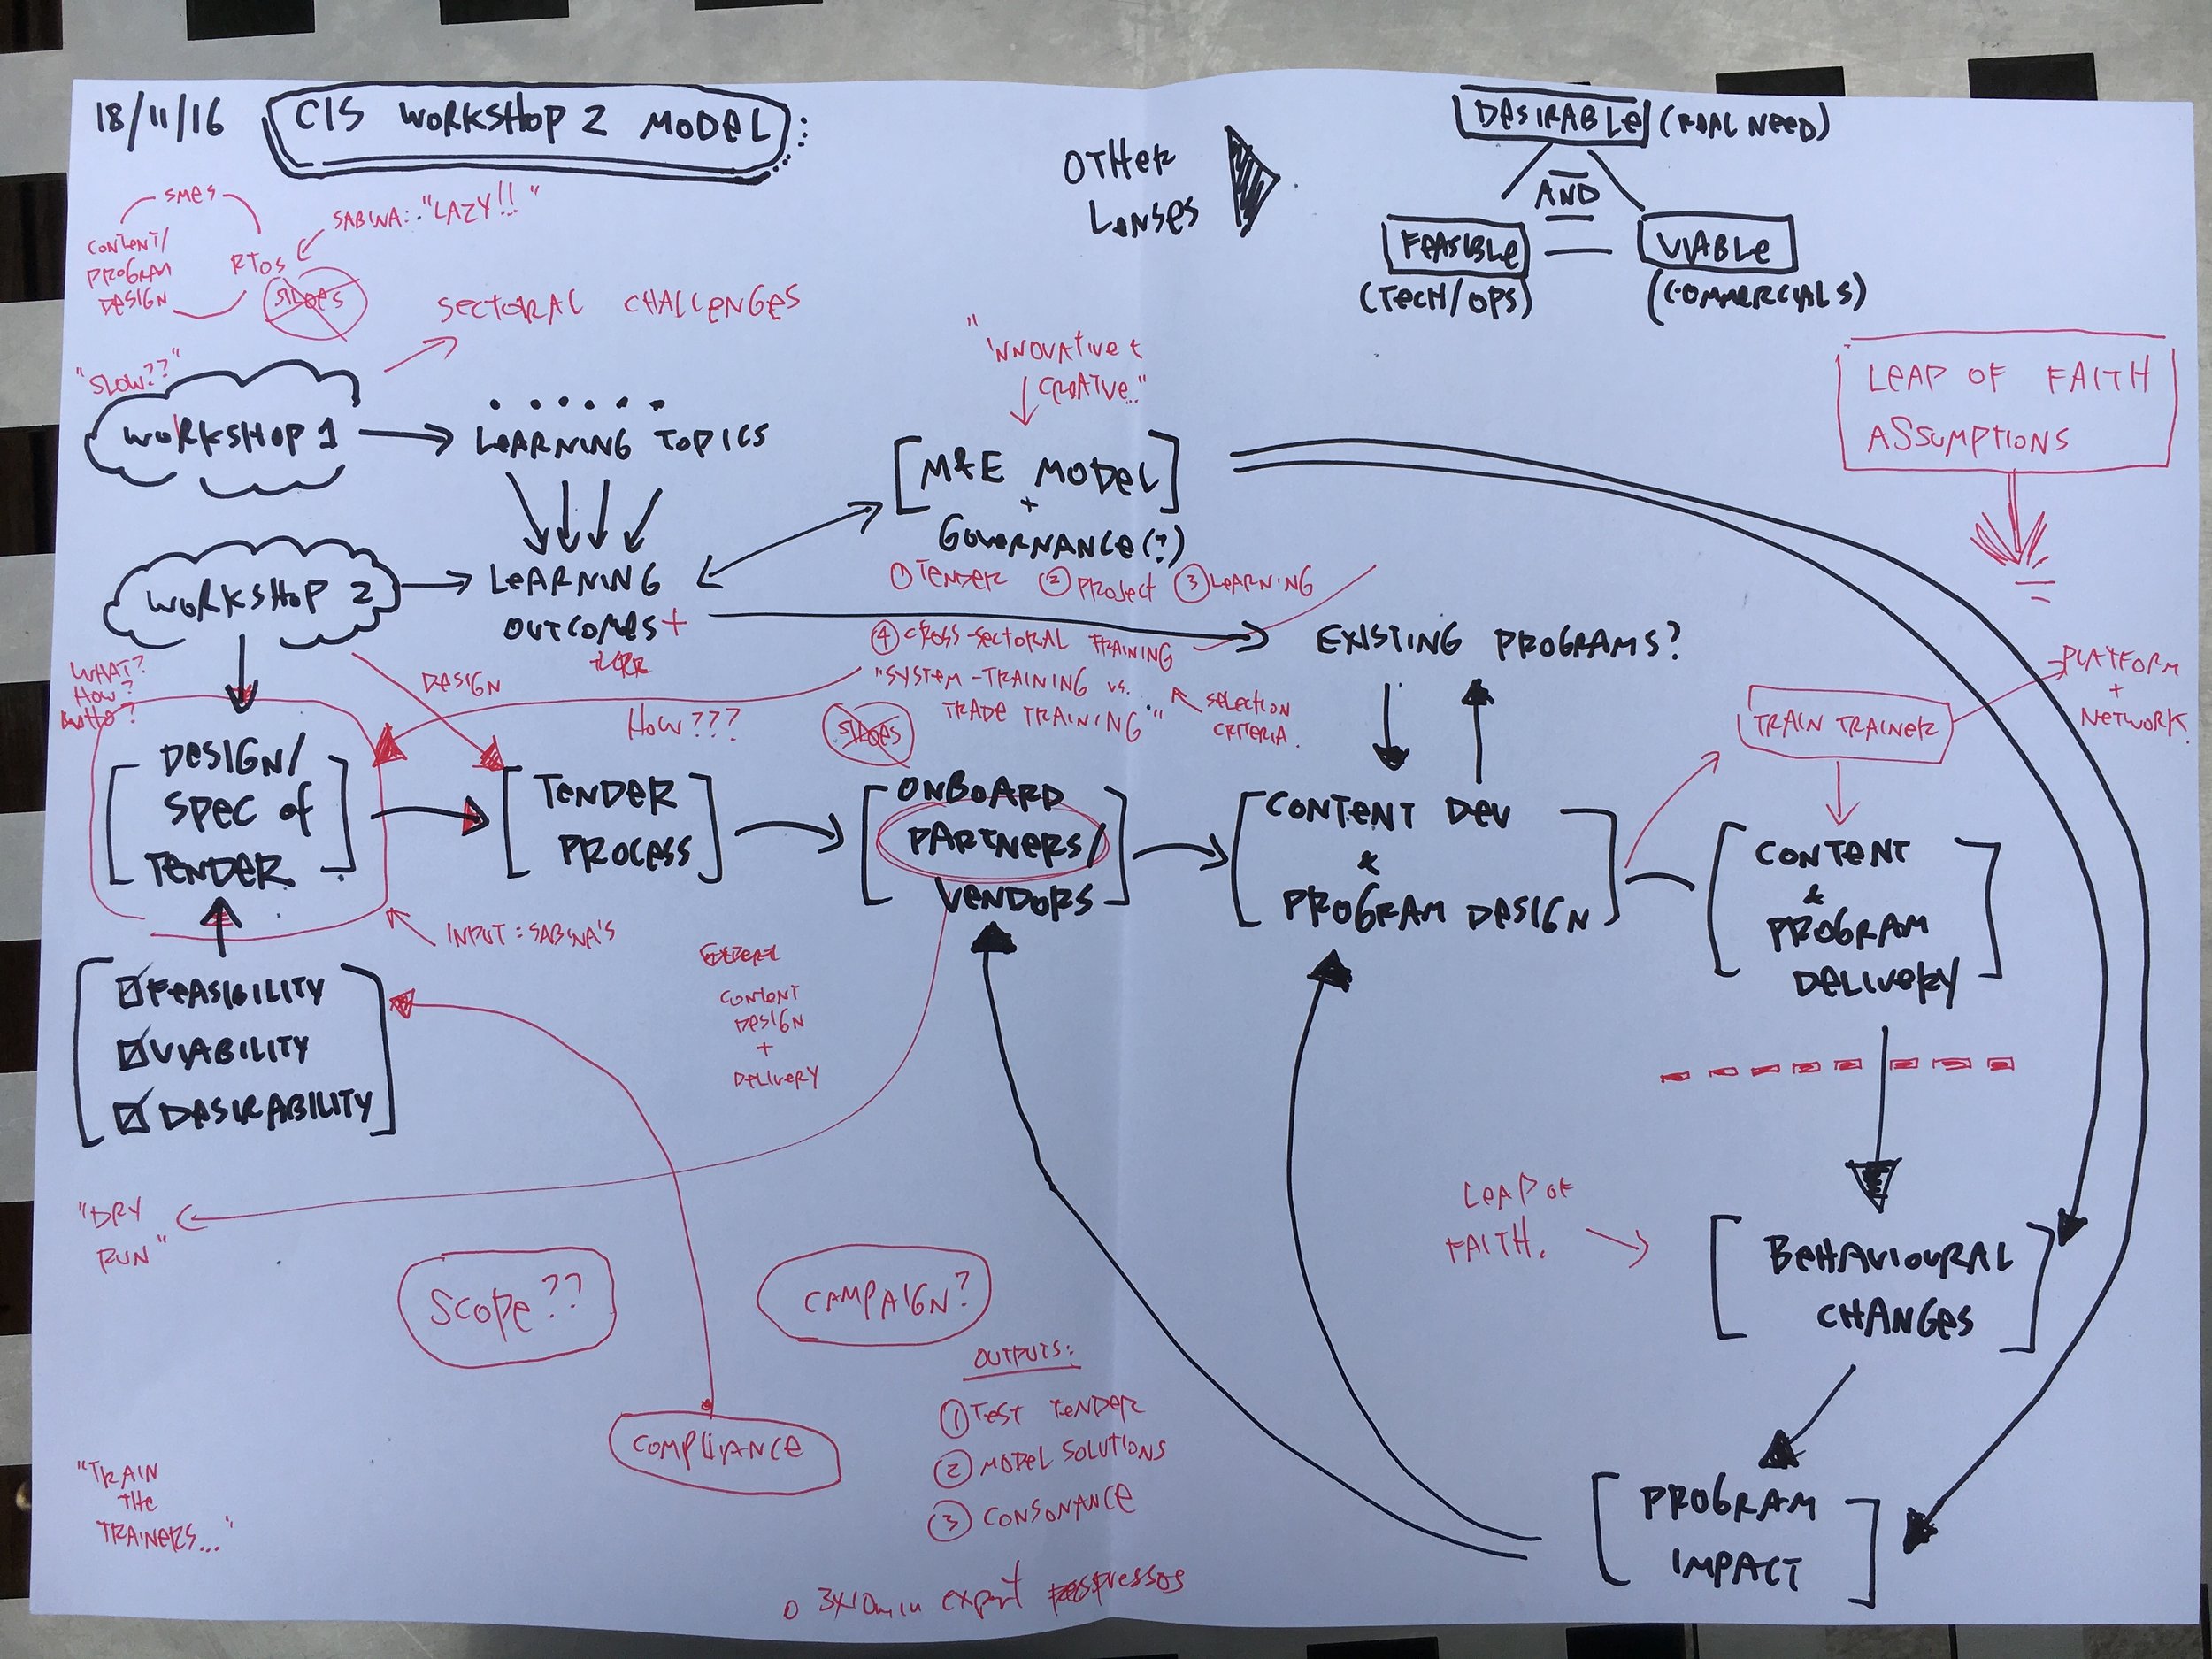 18/11/16
CIS WORKSHOP 2 MODEL
OTHER
LENSES
DESIRABLE (REAL NEED)
AND
FEASIBLE
VIABLE
(TECH/OPS)
(COMMERCIALS)
SMES
CONTENT/
PROGRAM
DESIGN
RTOS
SABINA: "LAZY!!"
SLIDES
SECTORAL CHALLENGES
"SLOW??"
WORKSHOP 1
LEARNING TOPICS
"INNOVATIVE +
CREATIVE.."
M&E MODEL
+
GOVERNANCE(?)
① TENDER ② PROJECT ③ LEARNING
④ CROSS-SECTORAL TRAINING
"SYSTEM-TRAINING vs.
TRADE TRAINING"
SELECTION
CRITERIA.
LEAP OF FAITH
ASSUMPTIONS
WORKSHOP 2
LEARNING
OUTCOMES +
EXISTING PROGRAMS?
WHAT?
HOW?
WHO?
DESIGN
HOW???
SLIDES
TRAIN TRAINER
PLATFORM
+
NETWORK
DESIGN/
SPEC OF
TENDER
TENDER
PROCESS
ONBOARD
PARTNERS/
VENDORS
CONTENT DEV
&
PROGRAM DESIGN
CONTENT
&
PROGRAM
DELIVERY
INPUT: SABINA'S
FEASIBILITY
VIABILITY
DESIRABILITY
CONTENT
DESIGN
+
DELIVERY
"DRY
RUN"
SCOPE??
CAMPAIGN?
LEAP OF
FAITH.
BEHAVIOURAL
CHANGES
COMPLIANCE
OUTPUTS:
① TEST TENDER
② MODEL SOLUTIONS
③ CONSONANCE
PROGRAM
IMPACT
"TRAIN
THE
TRAINERS..."
3x10min expert